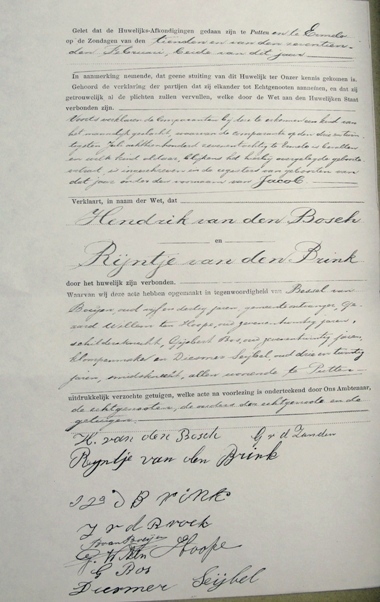 Gelet dat de Huwelijks-Afkondigingen gedaan zijn te Putten en te Ermelo
op de Zondagen van den tienden en van den zeventien
den Februari, beide van dit jaar
In aanmerking nemende, dat geene stuiting van dit Huwelijk ter Onzer kennis gekomen is.
Gehoord de verklaring der partijen dat zij elkander tot Echtgenooten aannemen, en dat zij
getrouwelijk al de plichten zullen vervullen, welke door de Wet aan den Huwelijken Staat
verbonden zijn.
Voorts verklaren de Comparanten bij deze te erkennen een kind van
het mannelijk geslacht, waarvan de comparante op den
Juli achttienhonderd
dit jaar onder de voornaam van Jacob
Verklaart, in naam der Wet, dat
Hendrik van den Bosch
en
Rijntje van den Brink
door het huwelijk zijn verbonden.
Waarvan wij deze acte hebben opgemaakt in tegenwoordigheid van Bessel van
oud vijf en dertig jaren, gemeenteontvanger, Ge-
rard Willem ten Hoope, oud zevenentwintig jaren,
Gijsbert Bos, oud jaren,
klompenmaker en Diesmer Seijbel, oud drie en twintig
jaren, allen wonende te Putten
uitdrukkelijk verzochte getuigen, welke acte na voorlezing is onderteekend door Ons Ambtenaar,
de echtgenooten, de ouders der echtgenoote en de
getuigen.
H. van den Bosch G v d Zanden
Rijntje van den Brink
D BRINK
J v d Broek
Hoope
G Bos
Diesmer Seijbel